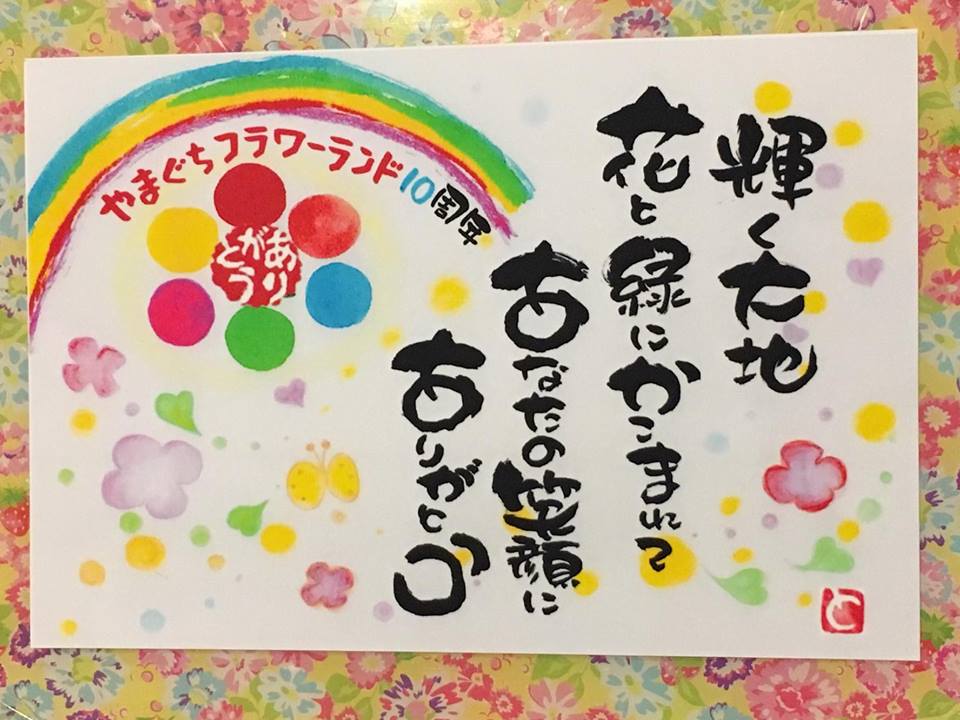 輝く大地
花と緑にかこまれて
あなたの笑顔に
ありがとう
やまぐちフラワーランド10周年
ありがとう
と